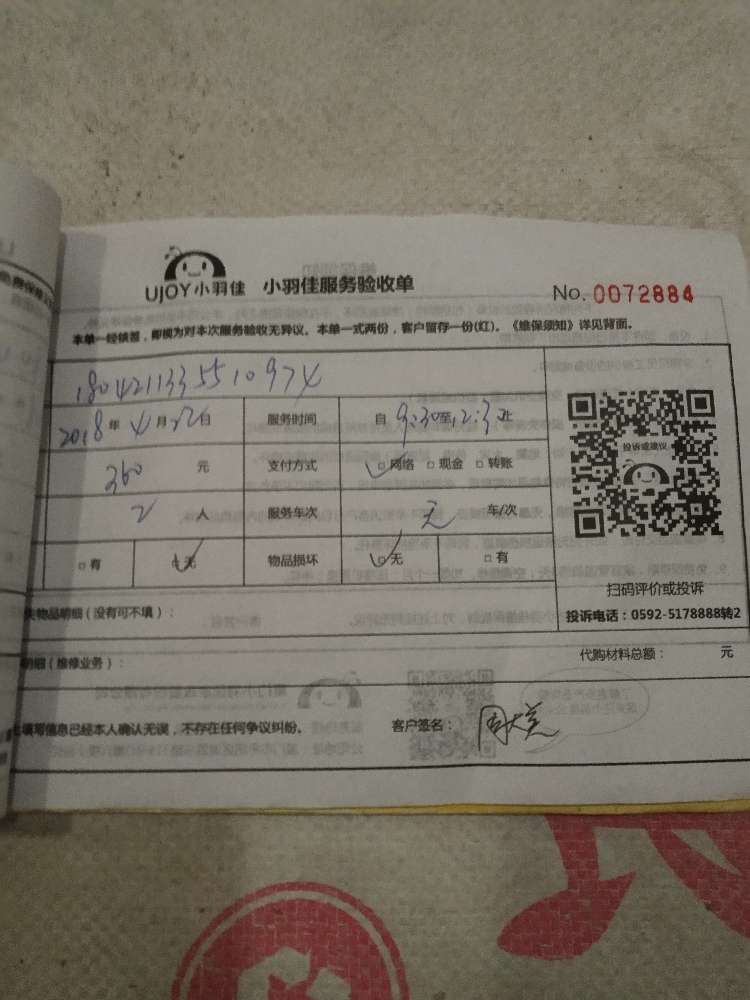 UJOY小羽佳 小羽佳服务验收单 No. 0072884
本单一经签署，即视为对本次服务验收无异议。本单一式两份，客户留存一份(红)。《维保须知》详见背面。
1804211335510974
2018年4月22日 服务时间 自9:30至12:30止
360 元 支付方式 □网络 □现金 □转账
2 人 服务车次 无 车/次
□有 □无 物品损坏 □无 □有
投诉或建议
扫码评价或投诉
失物品明细（没有可不填）：
投诉电话：0592-5178888转2
明细（维修业务）：
代购材料总额： 元
填写信息已经本人确认无误，不存在任何争议纠纷。 客户签名：